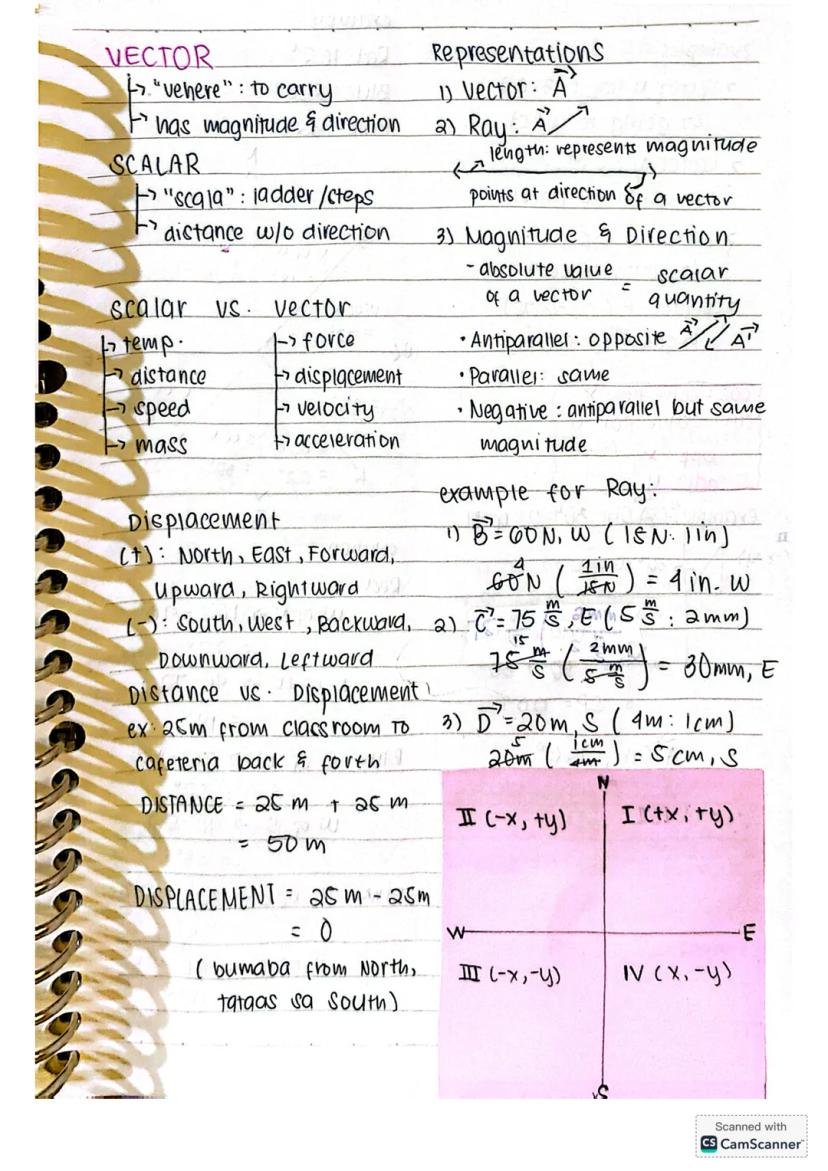 VECTOR
↳ "vehere" : to carry
↳ has magnitude & direction
SCALAR
↳ "scala" : ladder/steps
↳ distance w/o direction
scalar vs. vector
↳ temp. ↳ force
↳ distance ↳ displacement
↳ speed ↳ velocity
↳ mass ↳ acceleration
Displacement
(+): North, East, Forward,
Upward, Rightward
(-): South, West, Backward,
Downward, Leftward
Distance vs. Displacement
ex. 25m from classroom to
cafeteria back & forth
DISTANCE = 25 m + 25 m
= 50 m
DISPLACEMENT = 25 m - 25m
= 0
( bumaba from North,
tataas sa South)
Representations
1) Vector: A⃗
2) Ray: A⃗
length: represents magnitude
points at direction of a vector
3) Magnitude & Direction
- absolute value = scalar
of a vector quantity
• Antiparallel: opposite A⃗ A⃗'
• Parallel: same
• Negative: antiparallel but same
magnitude
example for Ray:
1) B⃗ = 60N, W (15N: 1in)
4
60N (1in/15N) = 4in. W
2) C⃗ = 75 m/s, E (5 m/s : 2mm)
15
75 m/s (2mm / 5 m/s) = 30mm, E
3) D⃗ = 20m, S (4m: 1cm)
5
20m (1cm/4m) = 5cm, S
N
II (-x, +y) I (+x, +y)
W E
III (-x, -y) IV (x, -y)
S
Scanned with
CS CamScanner